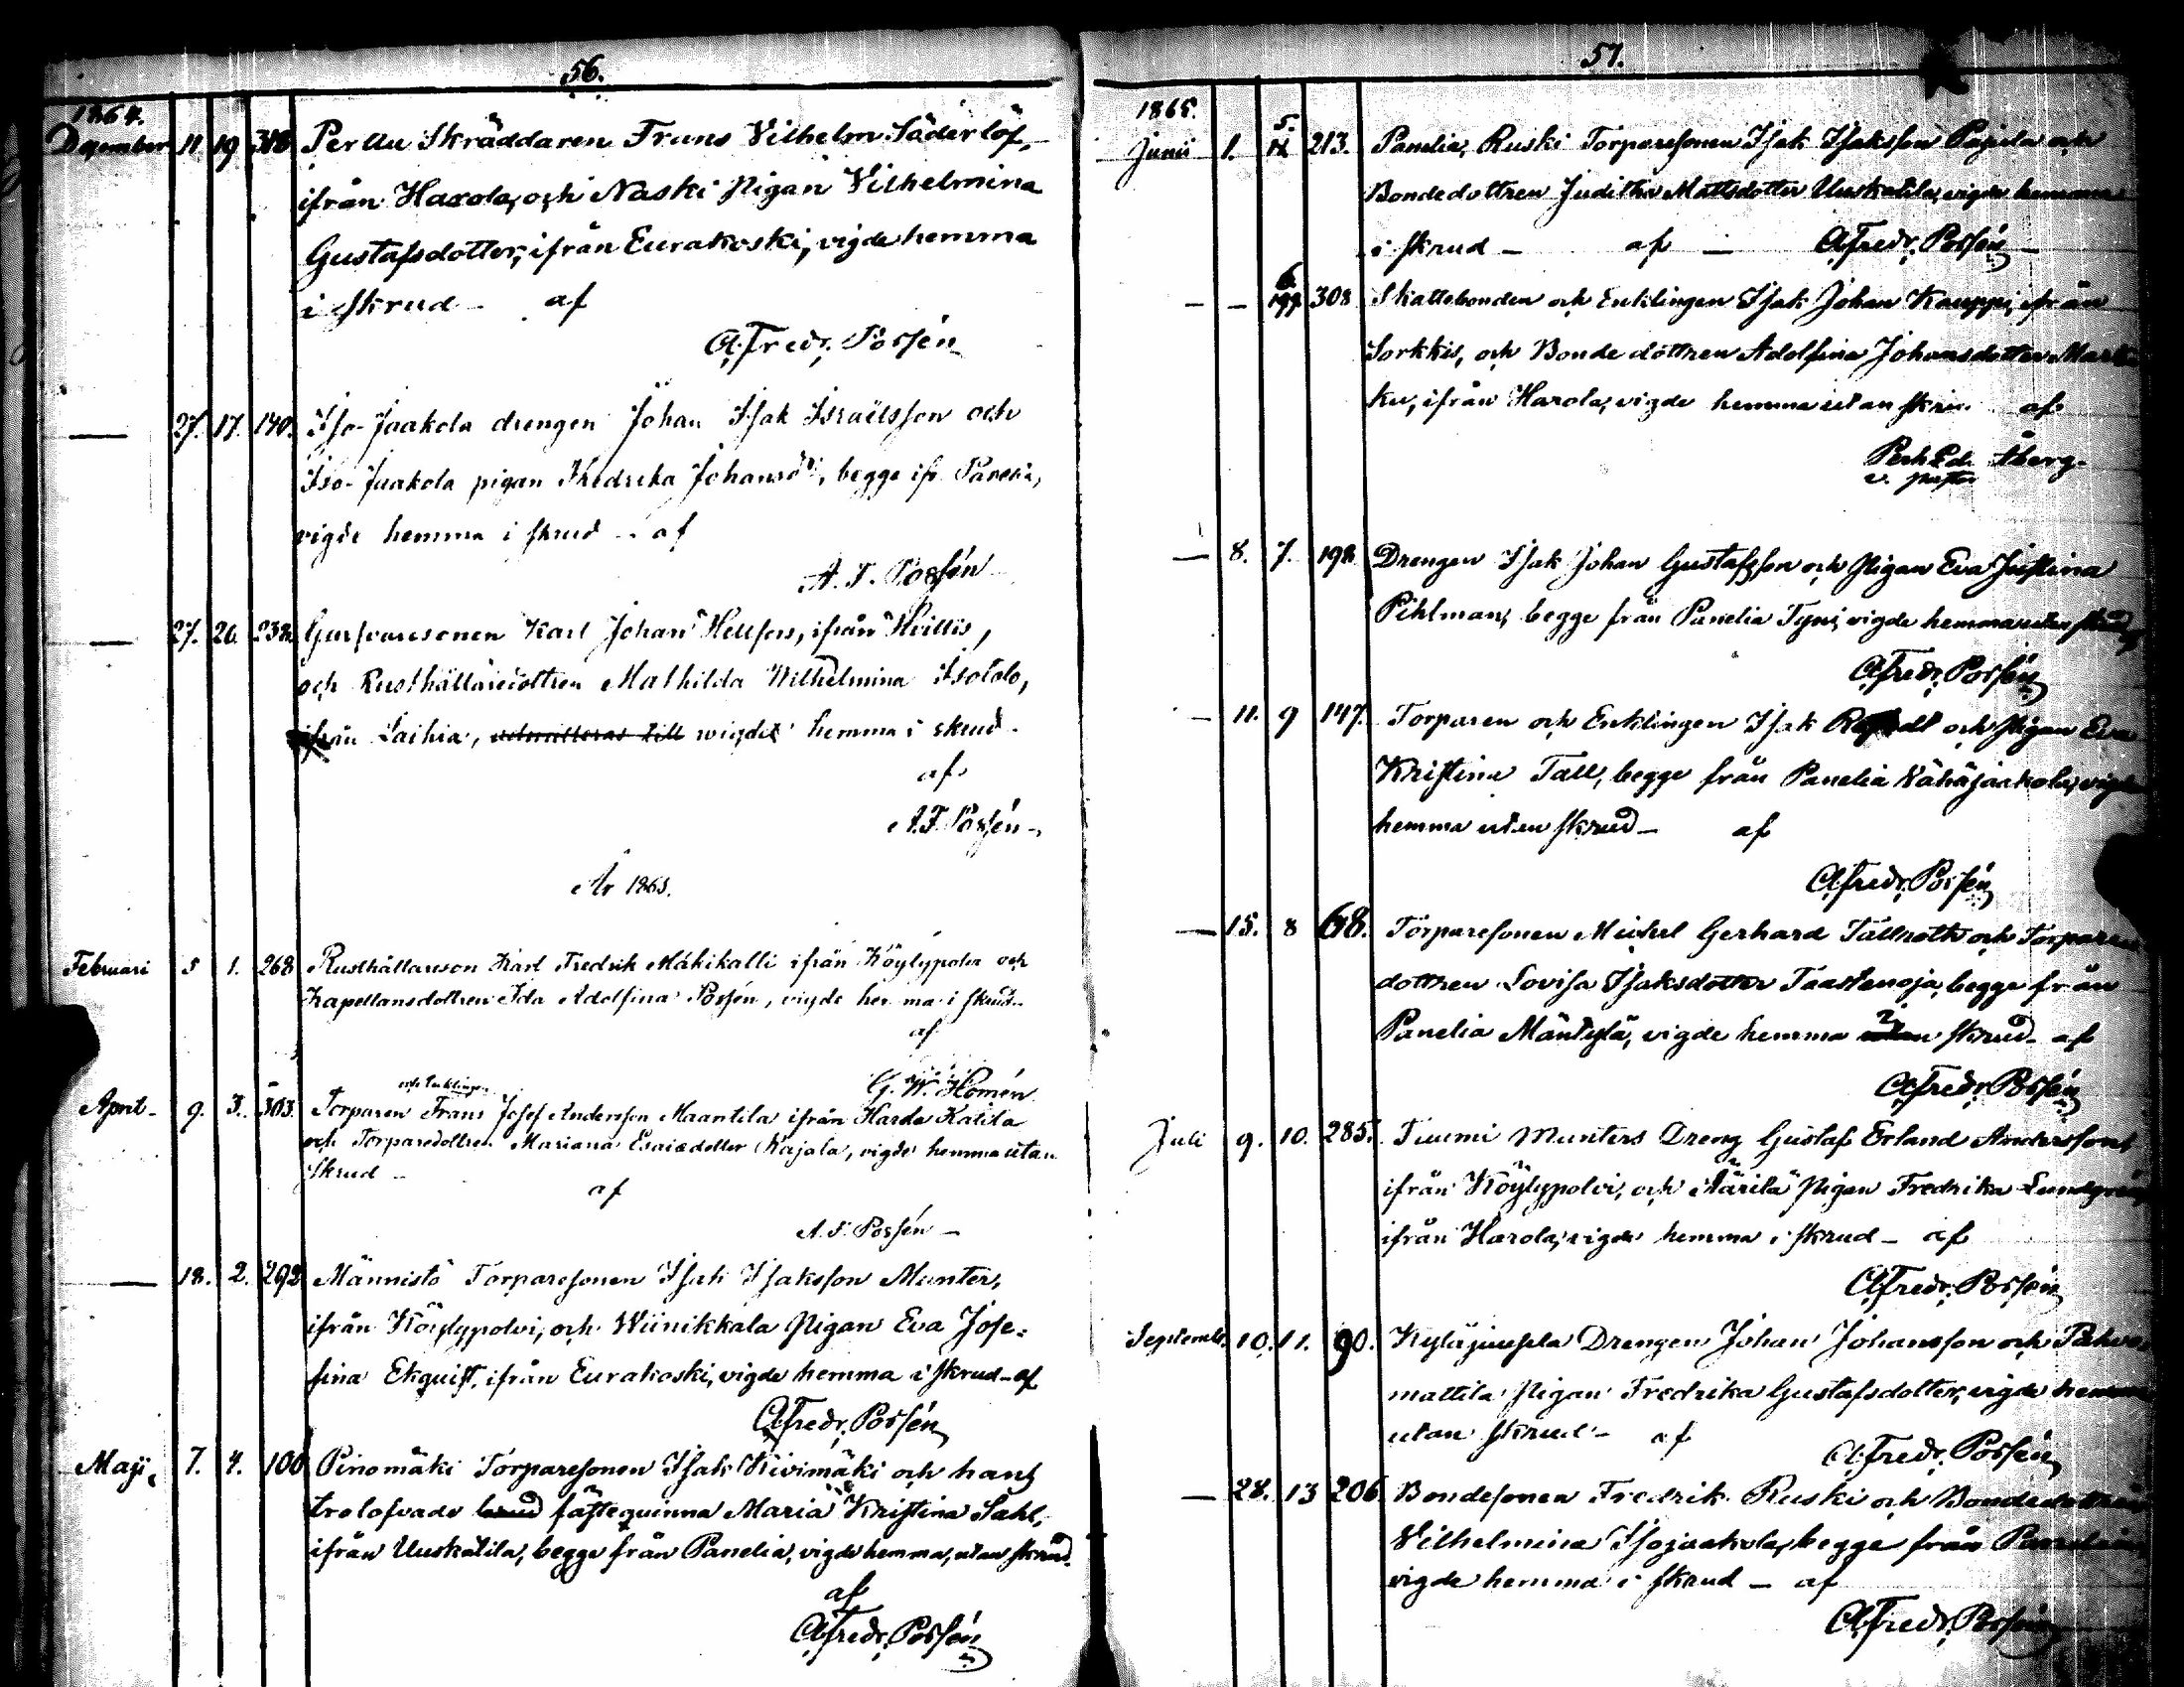 56.
1864.
December 11. 19. 318 Perttu Skräddaren Frans Vilhelm Söderlöf,
ifrån Harola, och Naski Pigan Vilhelmina
Gustafsdotter, ifrån Eurakoski, vigde hemma
i skrud - af
A. Fredr. Possén
— 27. 17. 140. Iso-Jaakola drengen Johan Isak Israelsson och
Iso-Jaakola pigan Fredrika Johansdr, begge ifr. Panelia,
vigde hemma i skrud - af
A. F. Possén
— 27. 20. 238. Karl Johan Hellfors, ifrån
och Rusthållaredottren Mathilda Wilhelmina Isotalo,
ifrån Laihia, till wigde hemma i skrud.
af
A. F. Possén -
År 1865.
Februari 5 1. 268 Rusthållareson Karl Fredrik Mäkikalli ifrån Köylypolvi och
Kapellansdottren Ida Adolfina Possén, vigde hemma i skrud
af
G. W. Homén
och Enklingen
April - 9. 3. 303. Torparen Frans Josef Andersson Maantila ifrån Harda Katila
och Torparedottren Mariana Esaiædotter Kajala, vigde hemma utan
skrud -
af
A. F. Possén -
— 18. 2. 292 Männistö Torparesonen Isak Isaksson Munter,
ifrån Köylypolvi, och Wiinikkala Pigan Eva Jose-
fina Ekquist, ifrån Eurakoski, vigde hemma i skrud - af
A. Fredr. Possén
Maji 7. 4. 100 Pinomäki Torparesonen Isak Kivimäki och hans
trolofvade brud fästequinna Maria Kristina Sahl,
ifrån Uuskatila, begge från Panelia, vigde hemma, utan skrud.
af
A. Fredr. Possén
57.
1865.
Junii 1. 5. 213. Panelia, Ruski Torparesonen Isak Isaksson Pajula och
Bondedottren Juditha Mattsdotter Uuskatila, vigde hemma
i skrud - af - A. Fredr. Possén -
— — 6. 308 Skattebonden och Enklingen Isak Johan Kauppi, ifrån
Sorkkis, och Bonde döttren Adolfina Johansdotter Mark-
ku, ifrån Harola, vigde hemma utan skru. af
Åberg.
v. pastor
— 8. 7. 198 Drengen Isak Johan Gustafsson och Pigan Eva Justina
Pihlman, begge från Panelia Tyni, vigde hemma utan skrud af
A. Fredr. Possén
— 11. 9 147. Torparen och Enklingen Isak och Pigan Eva
Kristina Tall, begge från Panelia Vähäjaakola, vigde
hemma utan skrud - af
A. Fredr. Possén
— 15. 8 68. Torparesonen Michel Gerhard Tallroth och Torpare
dottren Lovisa Isaksdotter Taastenoja, begge från
Panelia Mäntylä, vigde hemma utan i skrud - af
A. Fredr. Possén
Juli 9. 10. 285. Tuomi Munters Dreng Gustaf Erland Andersson,
ifrån Köylypolvi, och Äärilä Pigan Fredrika Lundgren
ifrån Harola, vigde hemma i skrud - af
A. Fredr. Possén
September 10. 11. 90. Kyläjuusela Drengen Johan Johansson och Pahus
mattila Pigan Fredrika Gustafsdotter, vigde hemma
utan skrud - af A. Fredr. Possén
— 28. 13 206 Bondesonen Fredrik Ruski och Bondedottren
Vilhelmina Isojaakola, begge från Panelia,
vigde hemma i skrud - af
A. Fredr. Possén